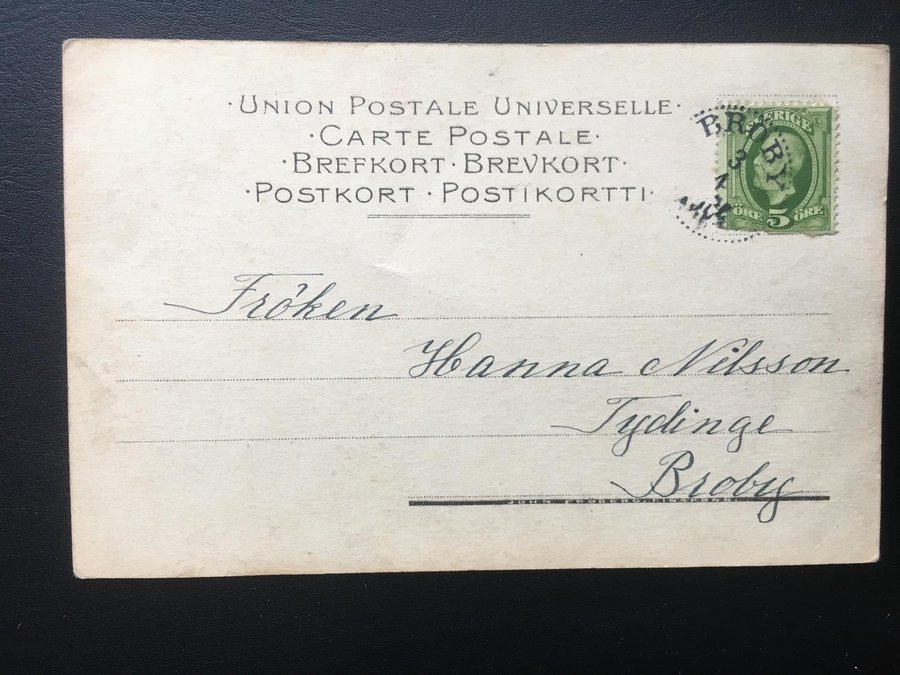 ·UNION POSTALE UNIVERSELLE·
·CARTE POSTALE·
·BREFKORT·BREVKORT·
·POSTKORT·POSTIKORTTI·
BROBY
3
SVERIGE
ÖRE 5 ÖRE
Fröken
Hanna Nilsson
Tydinge
Broby
JOHN FROBERG, FINSPONG.